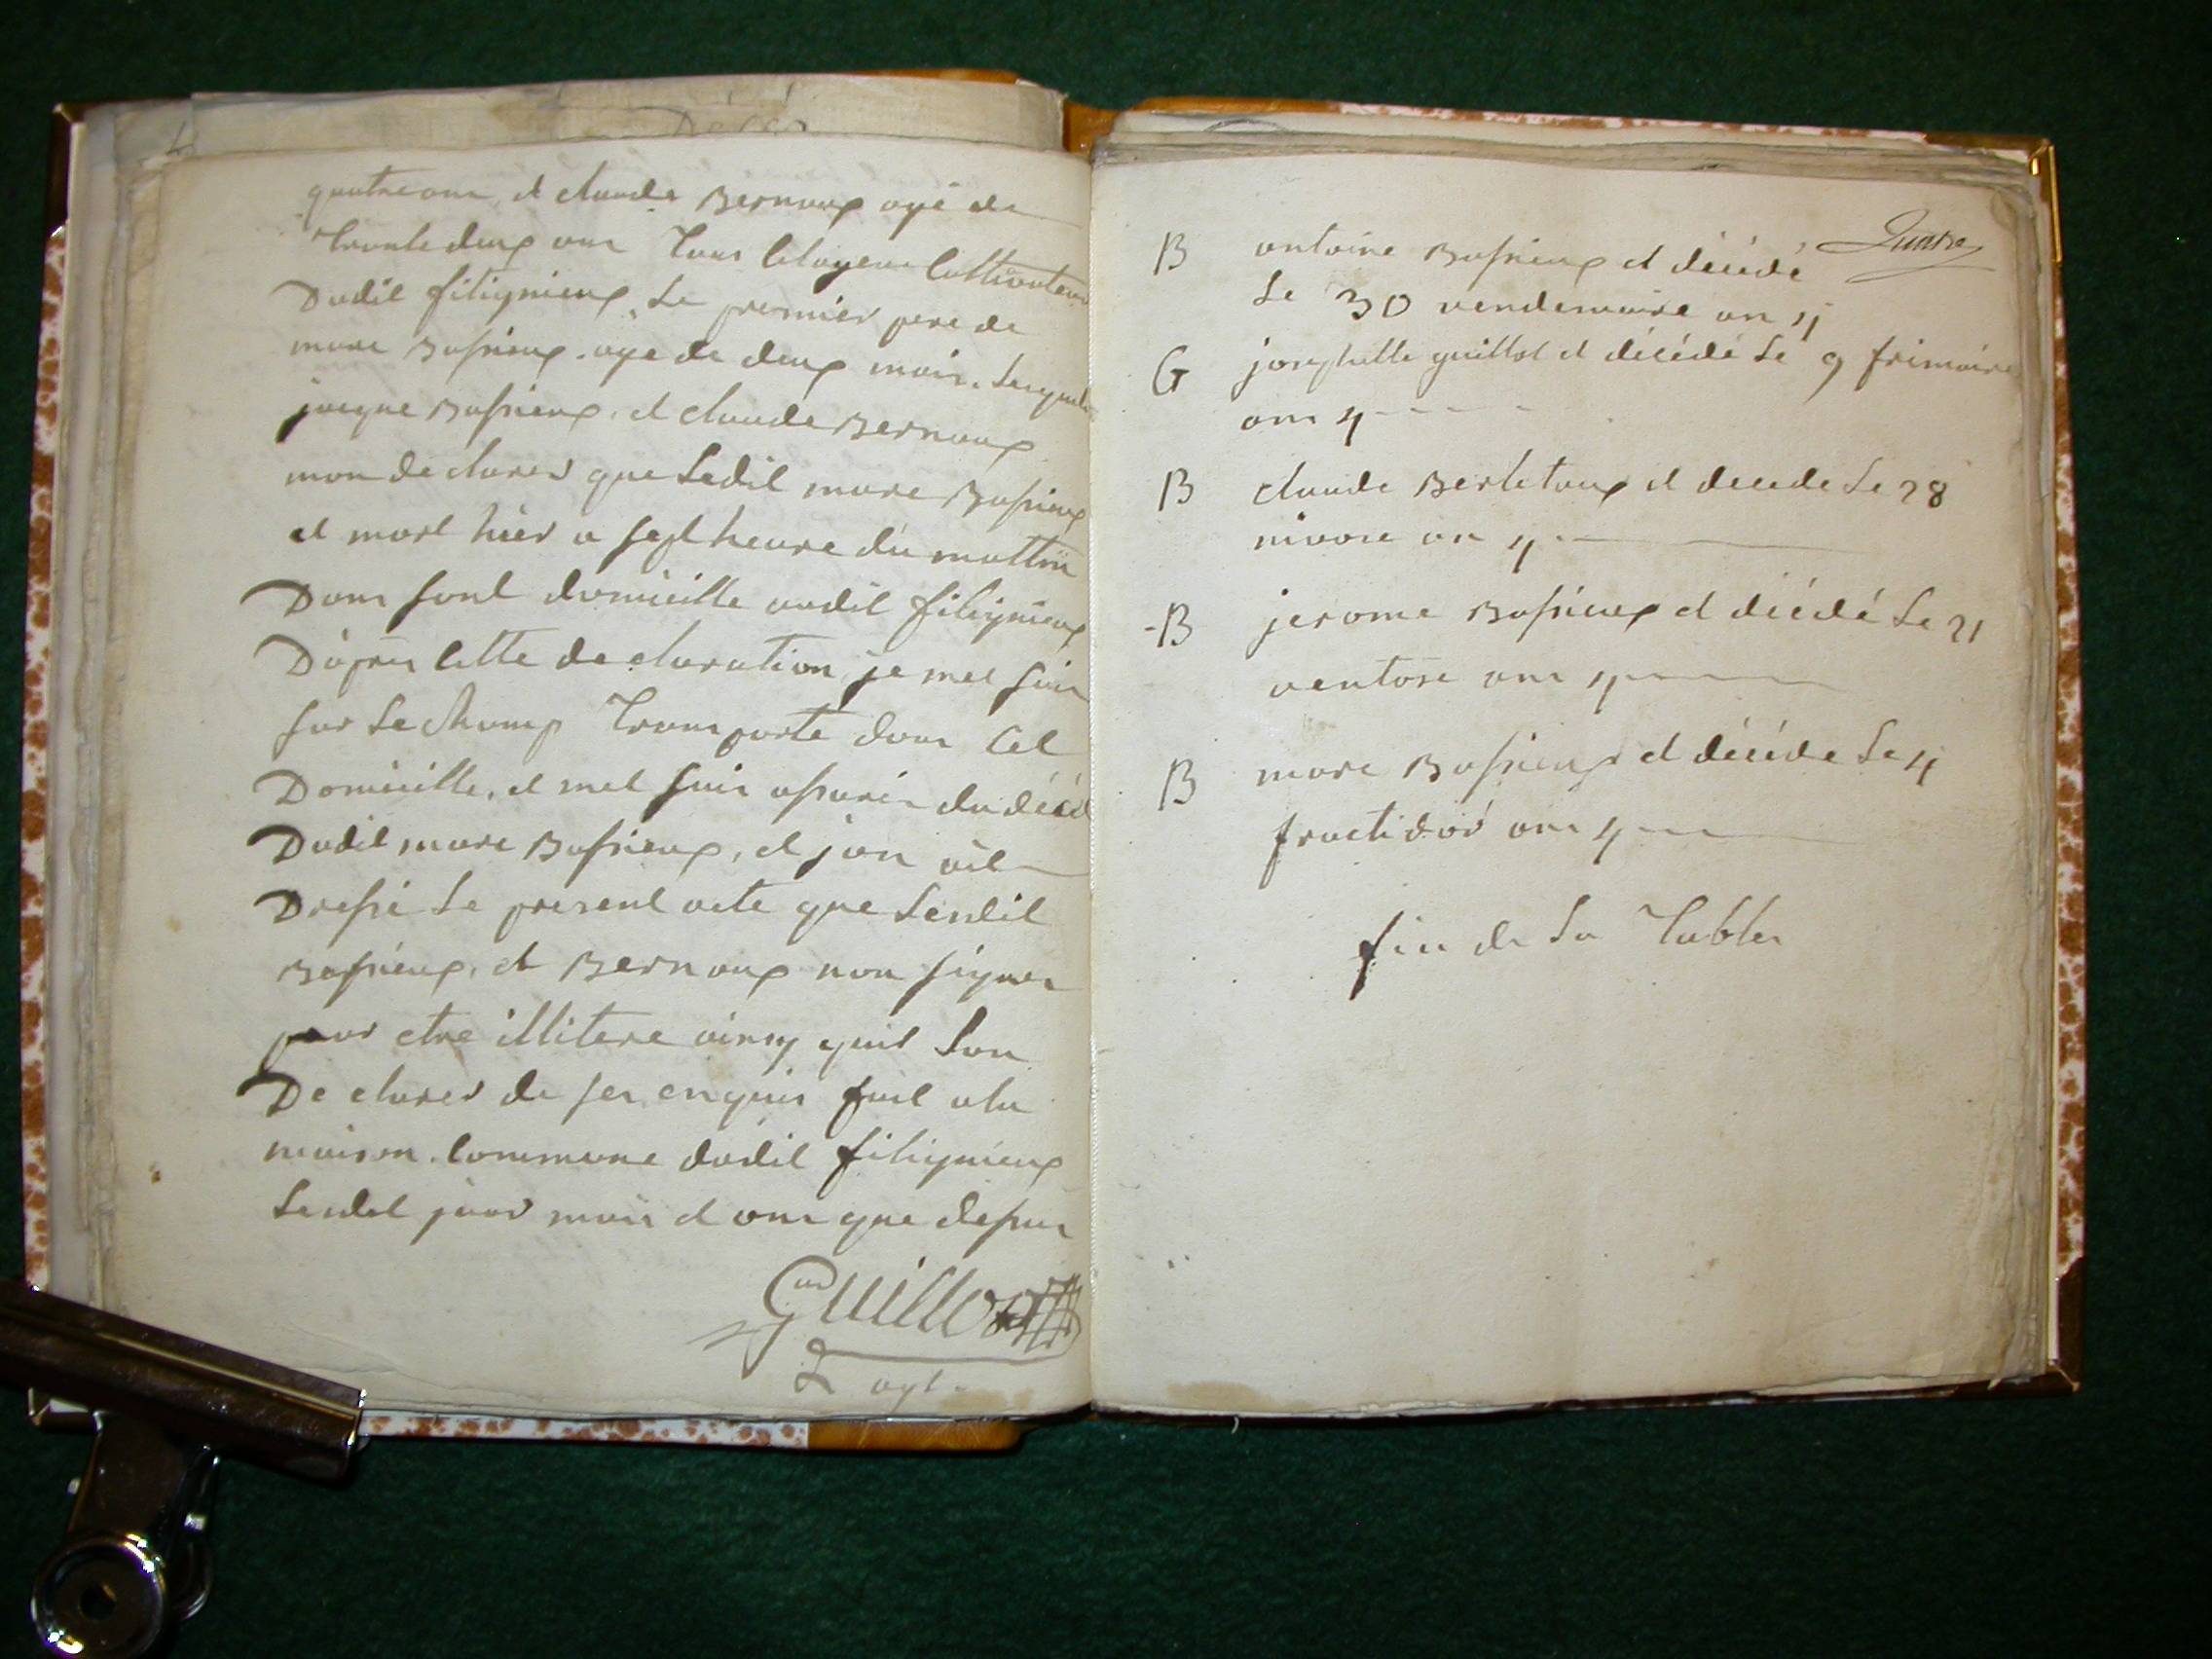 quatre ans, et claude Bernoux agé de
trente deux ans tous citoyens cultivateur
Dudit fitignieux, le premier pere de
marc Bassieux agé de deux mois. lesquels
jacque Bassieux, et claude Bernoux
mon declarer que ledit marc Bassieux
et mort hier a sept heure du mattin
Dans sont domicille audit fitignieux
D'apres cette declaration je met suis
sur le champ transporté dans cet
Domicille, et met suis assurer du décé
Dudit marc Bassieux, et j'on ait
Dressé le present acte que lesdit
Bassieux, et Bernoux non signer
pour etre illitere ainsy quil lon
De clarer de ses enquis fait ala
maison commune dudit fitignieux
lesdit jour mois et ans que dessus
Guillot
agt.
Quatre
B antoine Bassieux et décédé
le 30 vendemaire an 4
G josephette guillot et décédé le 9 frimaire
ans 4
B claude Berletoux et decede le 28
nivose an 4
B jerome Bassieux et décédé le 21
ventose ans 4
B marc Bassieux et décéde le 4
fructidor ans 4
fin de la Tables